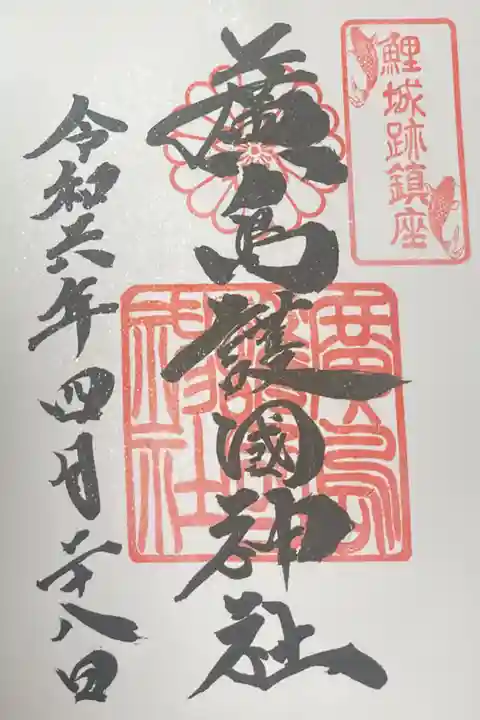 鯉城跡鎮座
廣島護國神社
令和六年四月二十八日
廣島護國神社